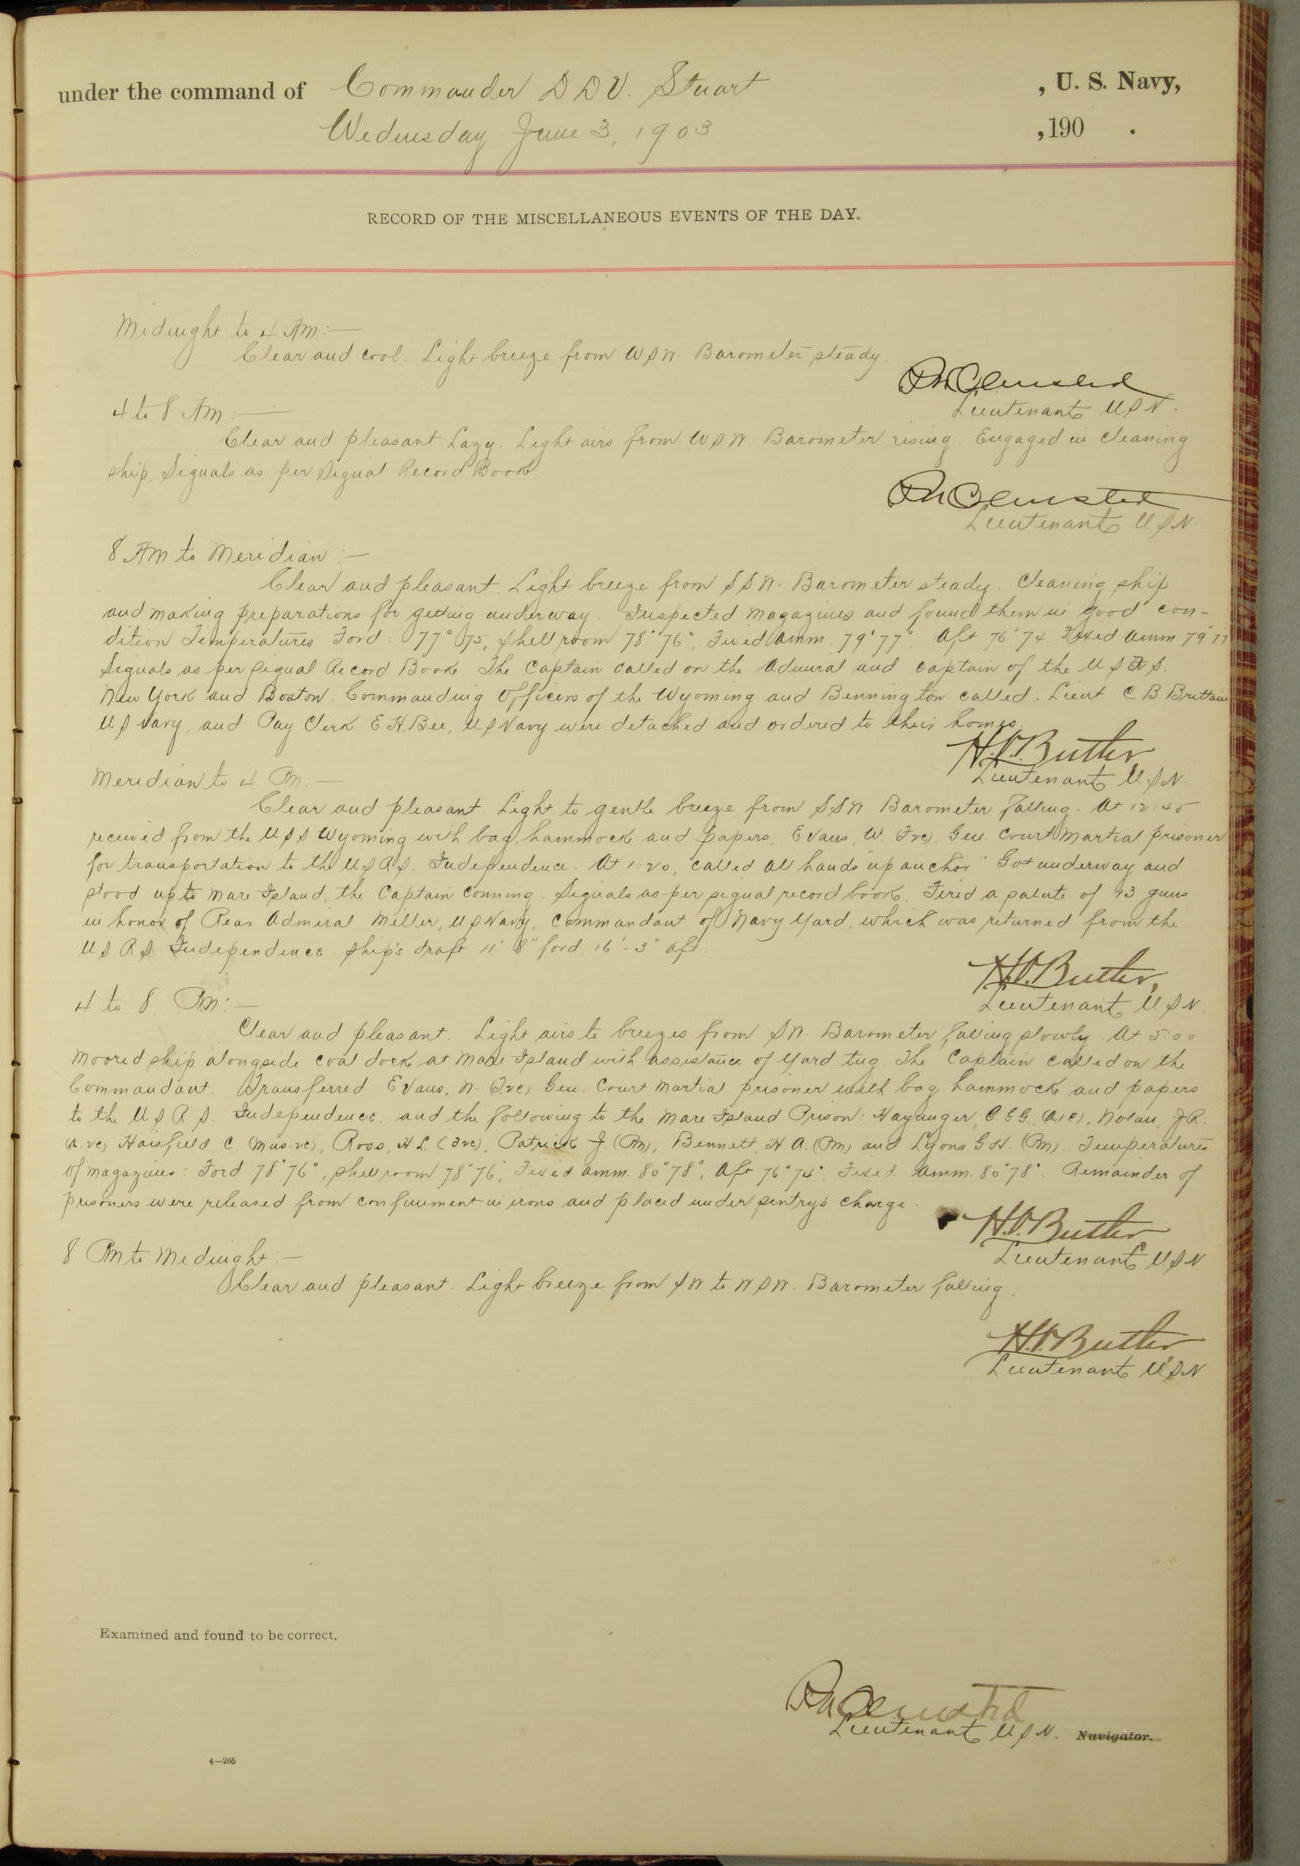 under the command of Commander D D V. Stuart , U. S. Navy,
Wednesday June 3, 1903 , 190 .
RECORD OF THE MISCELLANEOUS EVENTS OF THE DAY.
Midnight to 4 AM:—
Clear and cool. Light breeze from WSW. Barometer steady.
Olmsted
Lieutenant USN.
4 to 8 AM:—
Clear and pleasant Lazy. Light airs from WSW. Barometer rising. Engaged in cleaning
ship. Signals as per Signal Record Book
Olmsted
Lieutenant USN.
8 AM to Meridian:—
Clear and pleasant. Light breeze from SSW. Barometer steady. Cleaning ship
and making preparations for getting underway. Inspected magazines and found them in good con-
dition Temperatures Ford: 77° 75°, shell room 78° 76°, Fixed amm. 79° 77°. Aft 76° 74. Fixed amm 79° 77
Signals as per Signal Record Book. The Captain called on the Admiral and Captain of the U S F S.
New York and Boston. Commanding Officers of the Wyoming and Bennington called. Lieut C B Brittain
U S Navy, and Pay Clerk E. H. Bee, U S Navy were detached and ordered to their homes.
Butler
Lieutenant USN.
Meridian to 4 PM:—
Clear and pleasant. Light to gentle breeze from SSW. Barometer falling. At 12.45
received from the U S S Wyoming with bag, hammock and papers, Evans, W. Gen. Court Martial prisoner
for transportation to the U S R S. Independence. At 1.20, called all hands "up anchor" Got underway and
stood up to Mare Island, the Captain conning. Signals as per signal record book. Fired a salute of 13 guns
in honor of Rear Admiral Miller, U S Navy, Commandant of Navy Yard, which was returned from the
U S R S Independence. Ship's draft 11' 8" ford. 16'-3" aft.
Butler,
Lieutenant USN.
4 to 8 PM:—
Clear and pleasant. Light airs to breezes from SW. Barometer falling slowly. At 5.00
moored ship alongside coal dock at Mare Island with assistance of yard tug. The Captain called on the
Commandant. Transferred Evans, W. Gen. Court Martial prisoner with bag hammock and papers
to the U S R S. Independence. and the following to the Mare Island Prison: Nolan, J. R.
C. Ross, H L. Patrick J (Pm), Bennett, H A. (Pm) and Lyons G. H. (Pm). Temperatures
of magazines: Ford 78° 76°, shell room 78° 76°, Fixed amm. 80° 78°, Aft 76° 74°. Fixed amm. 80° 78°. Remainder of
prisoners were released from confinement in irons and placed under sentry's charge.
Butler
Lieutenant USN
8 PM to Midnight:—
Clear and pleasant. Light breeze from SW to WSW. Barometer falling.
Butler
Lieutenant USN
Examined and found to be correct.
Olmsted
Lieutenant USN. Navigator.
4—265